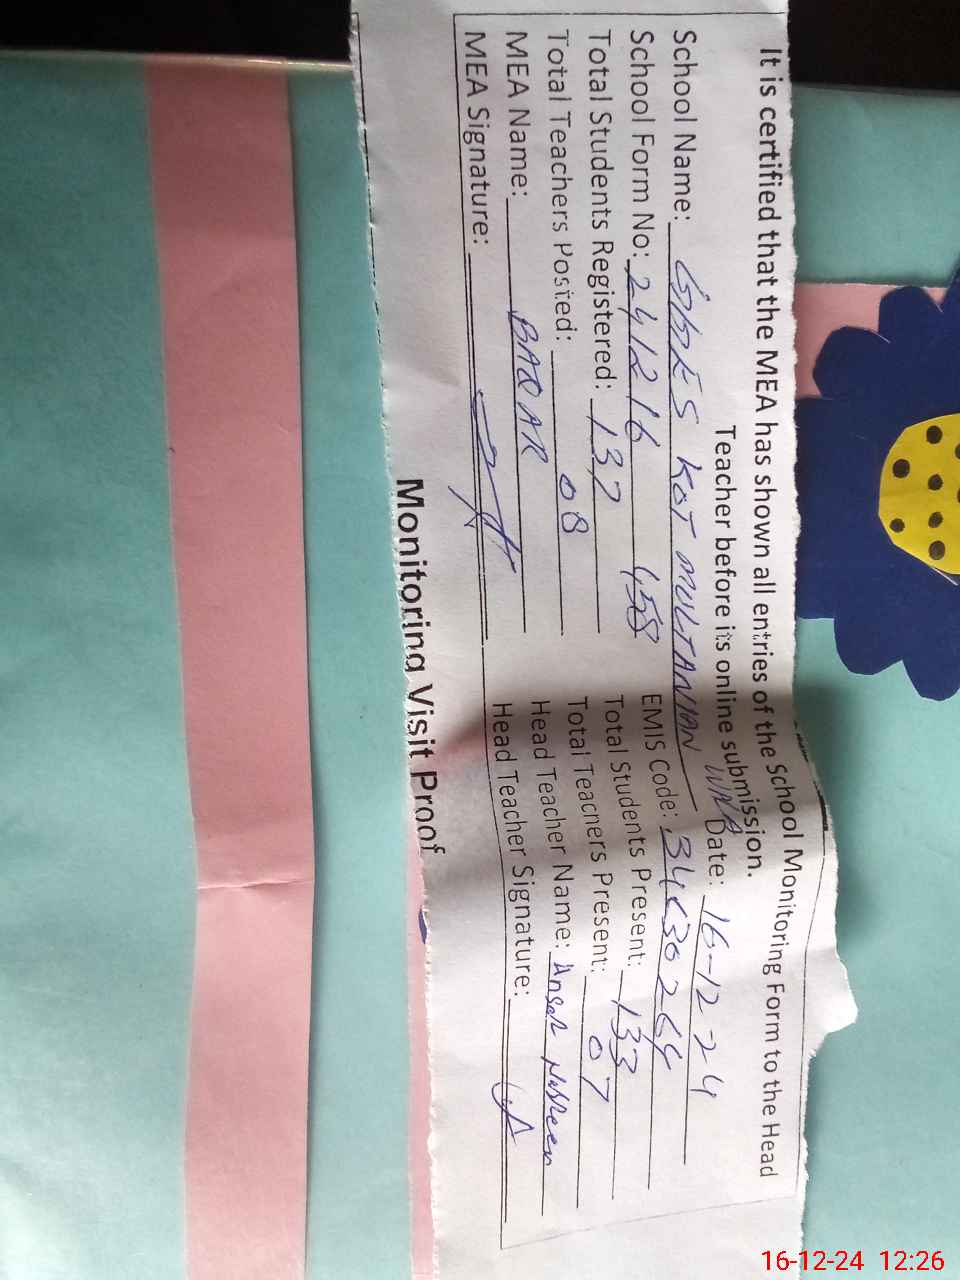 It is certified that the MEA has shown all entries of the School Monitoring Form to the Head
Teacher before its online submission.
School Name: GGES KOT MULTANIAN WNA Date: 16-12 24
School Form No: 241216 458 EMIS Code: 34630264
Total Students Registered: 137 Total Students Present: 133
Total Teachers Posted: 08 Total Teachers Present: 07
MEA Name: BABAR Head Teacher Name: Ansar Nasreen
MEA Signature: Head Teacher Signature:
Monitoring Visit Proof
16-12-24 12:26